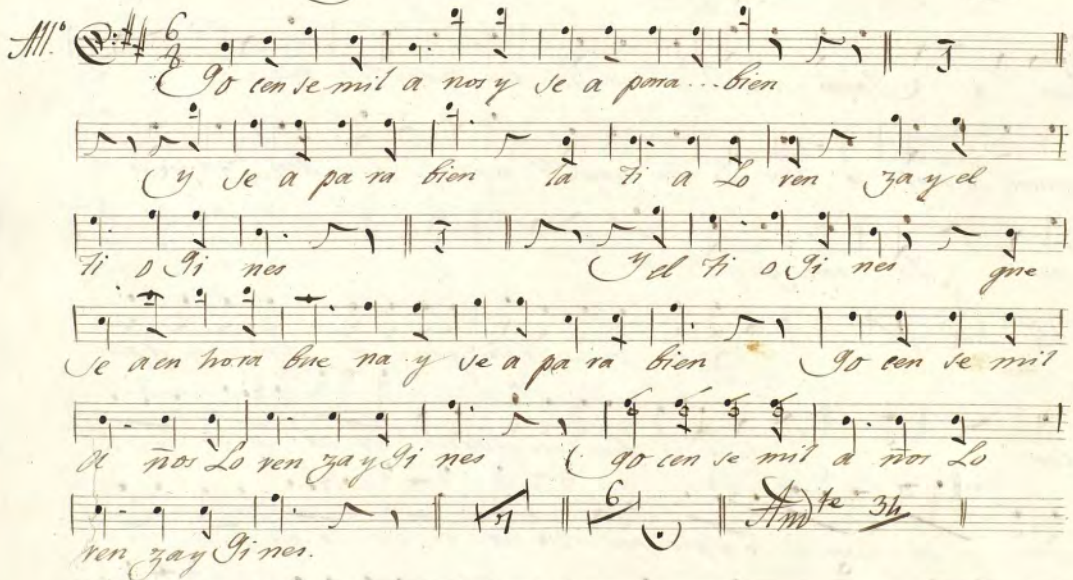 All.º 6 8
Go cen se mil a nos y se a para... bien
1
y se a pa ra bien la ti a Lo ren za y el
ti o Gi nes y el ti o Gi nes que
1
se a en hora bue na y se a pa ra bien go cen se mil
a ños Lo ren za y Gi nes go cen se mil a ños Lo
6 And.te 34
ren za y Gi nes.